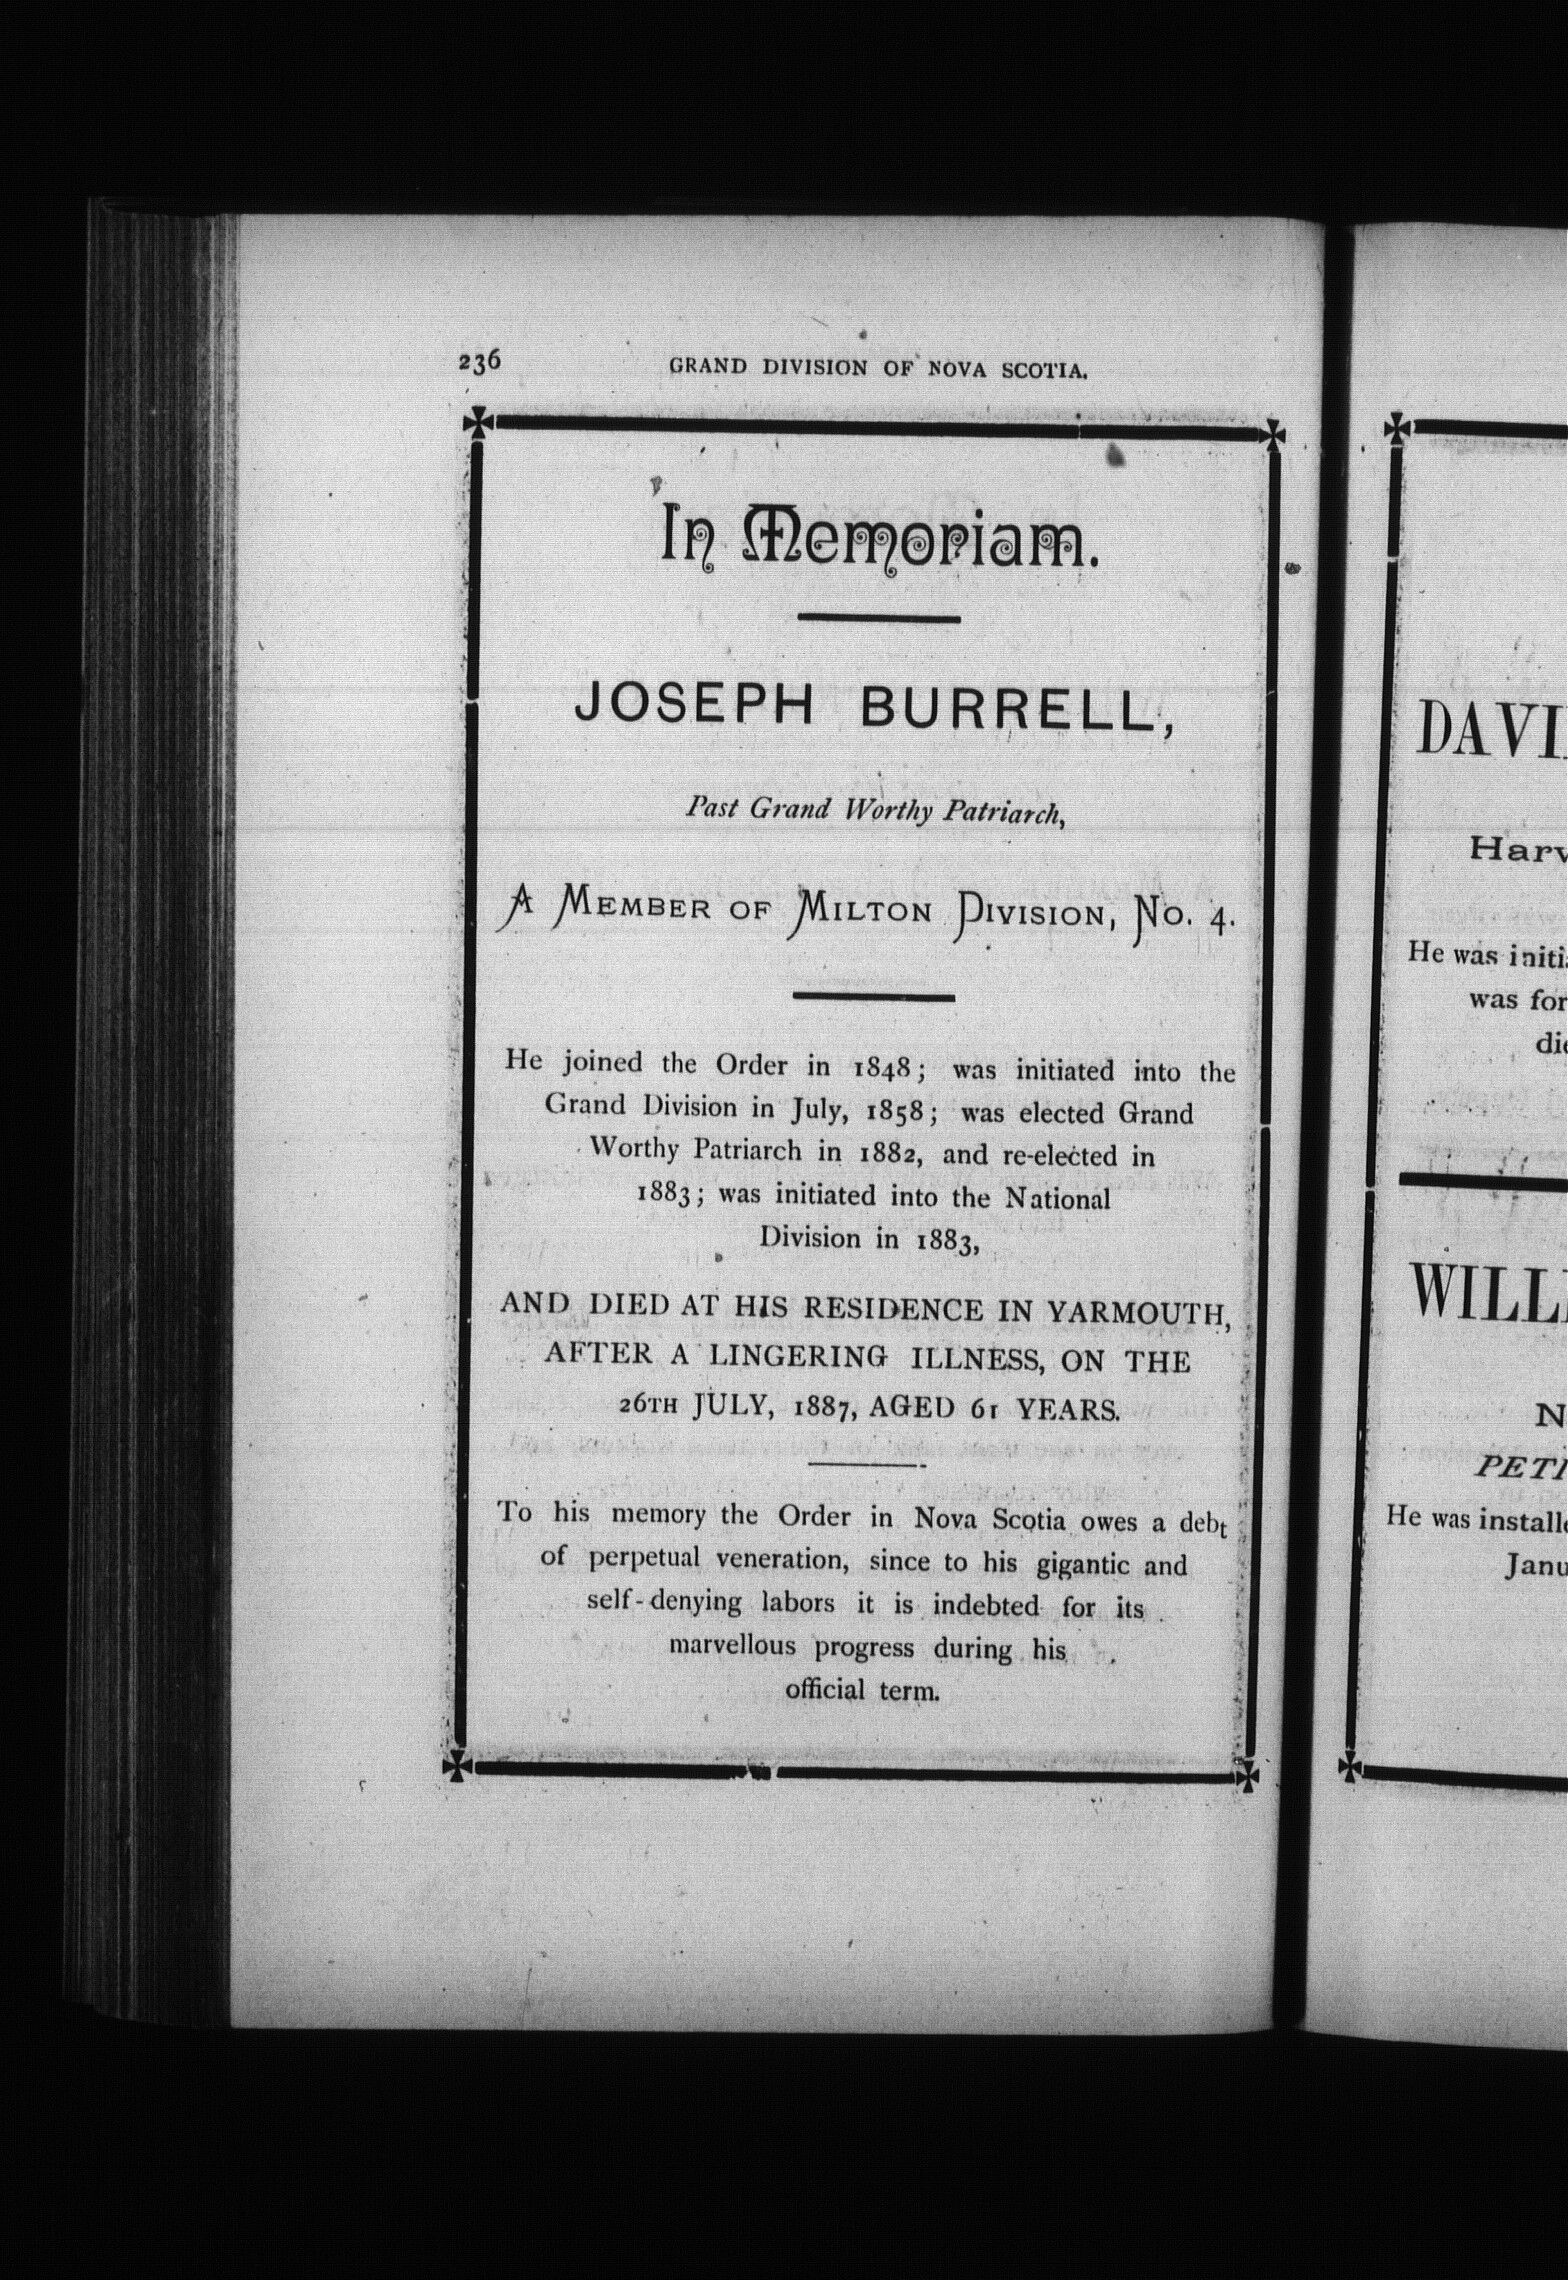 236
GRAND DIVISION OF NOVA SCOTIA.
In Memoriam.
JOSEPH BURRELL,
Past Grand Worthy Patriarch,
A MEMBER OF MILTON DIVISION, NO. 4.
He joined the Order in 1848; was initiated into the
Grand Division in July, 1858; was elected Grand
Worthy Patriarch in 1882, and re-elected in
1883; was initiated into the National
Division in 1883,
AND DIED AT HIS RESIDENCE IN YARMOUTH,
AFTER A LINGERING ILLNESS, ON THE
26TH JULY, 1887, AGED 61 YEARS.
To his memory the Order in Nova Scotia owes a debt
of perpetual veneration, since to his gigantic and
self-denying labors it is indebted for its
marvellous progress during his
official term.
He was
was
WILL
He was